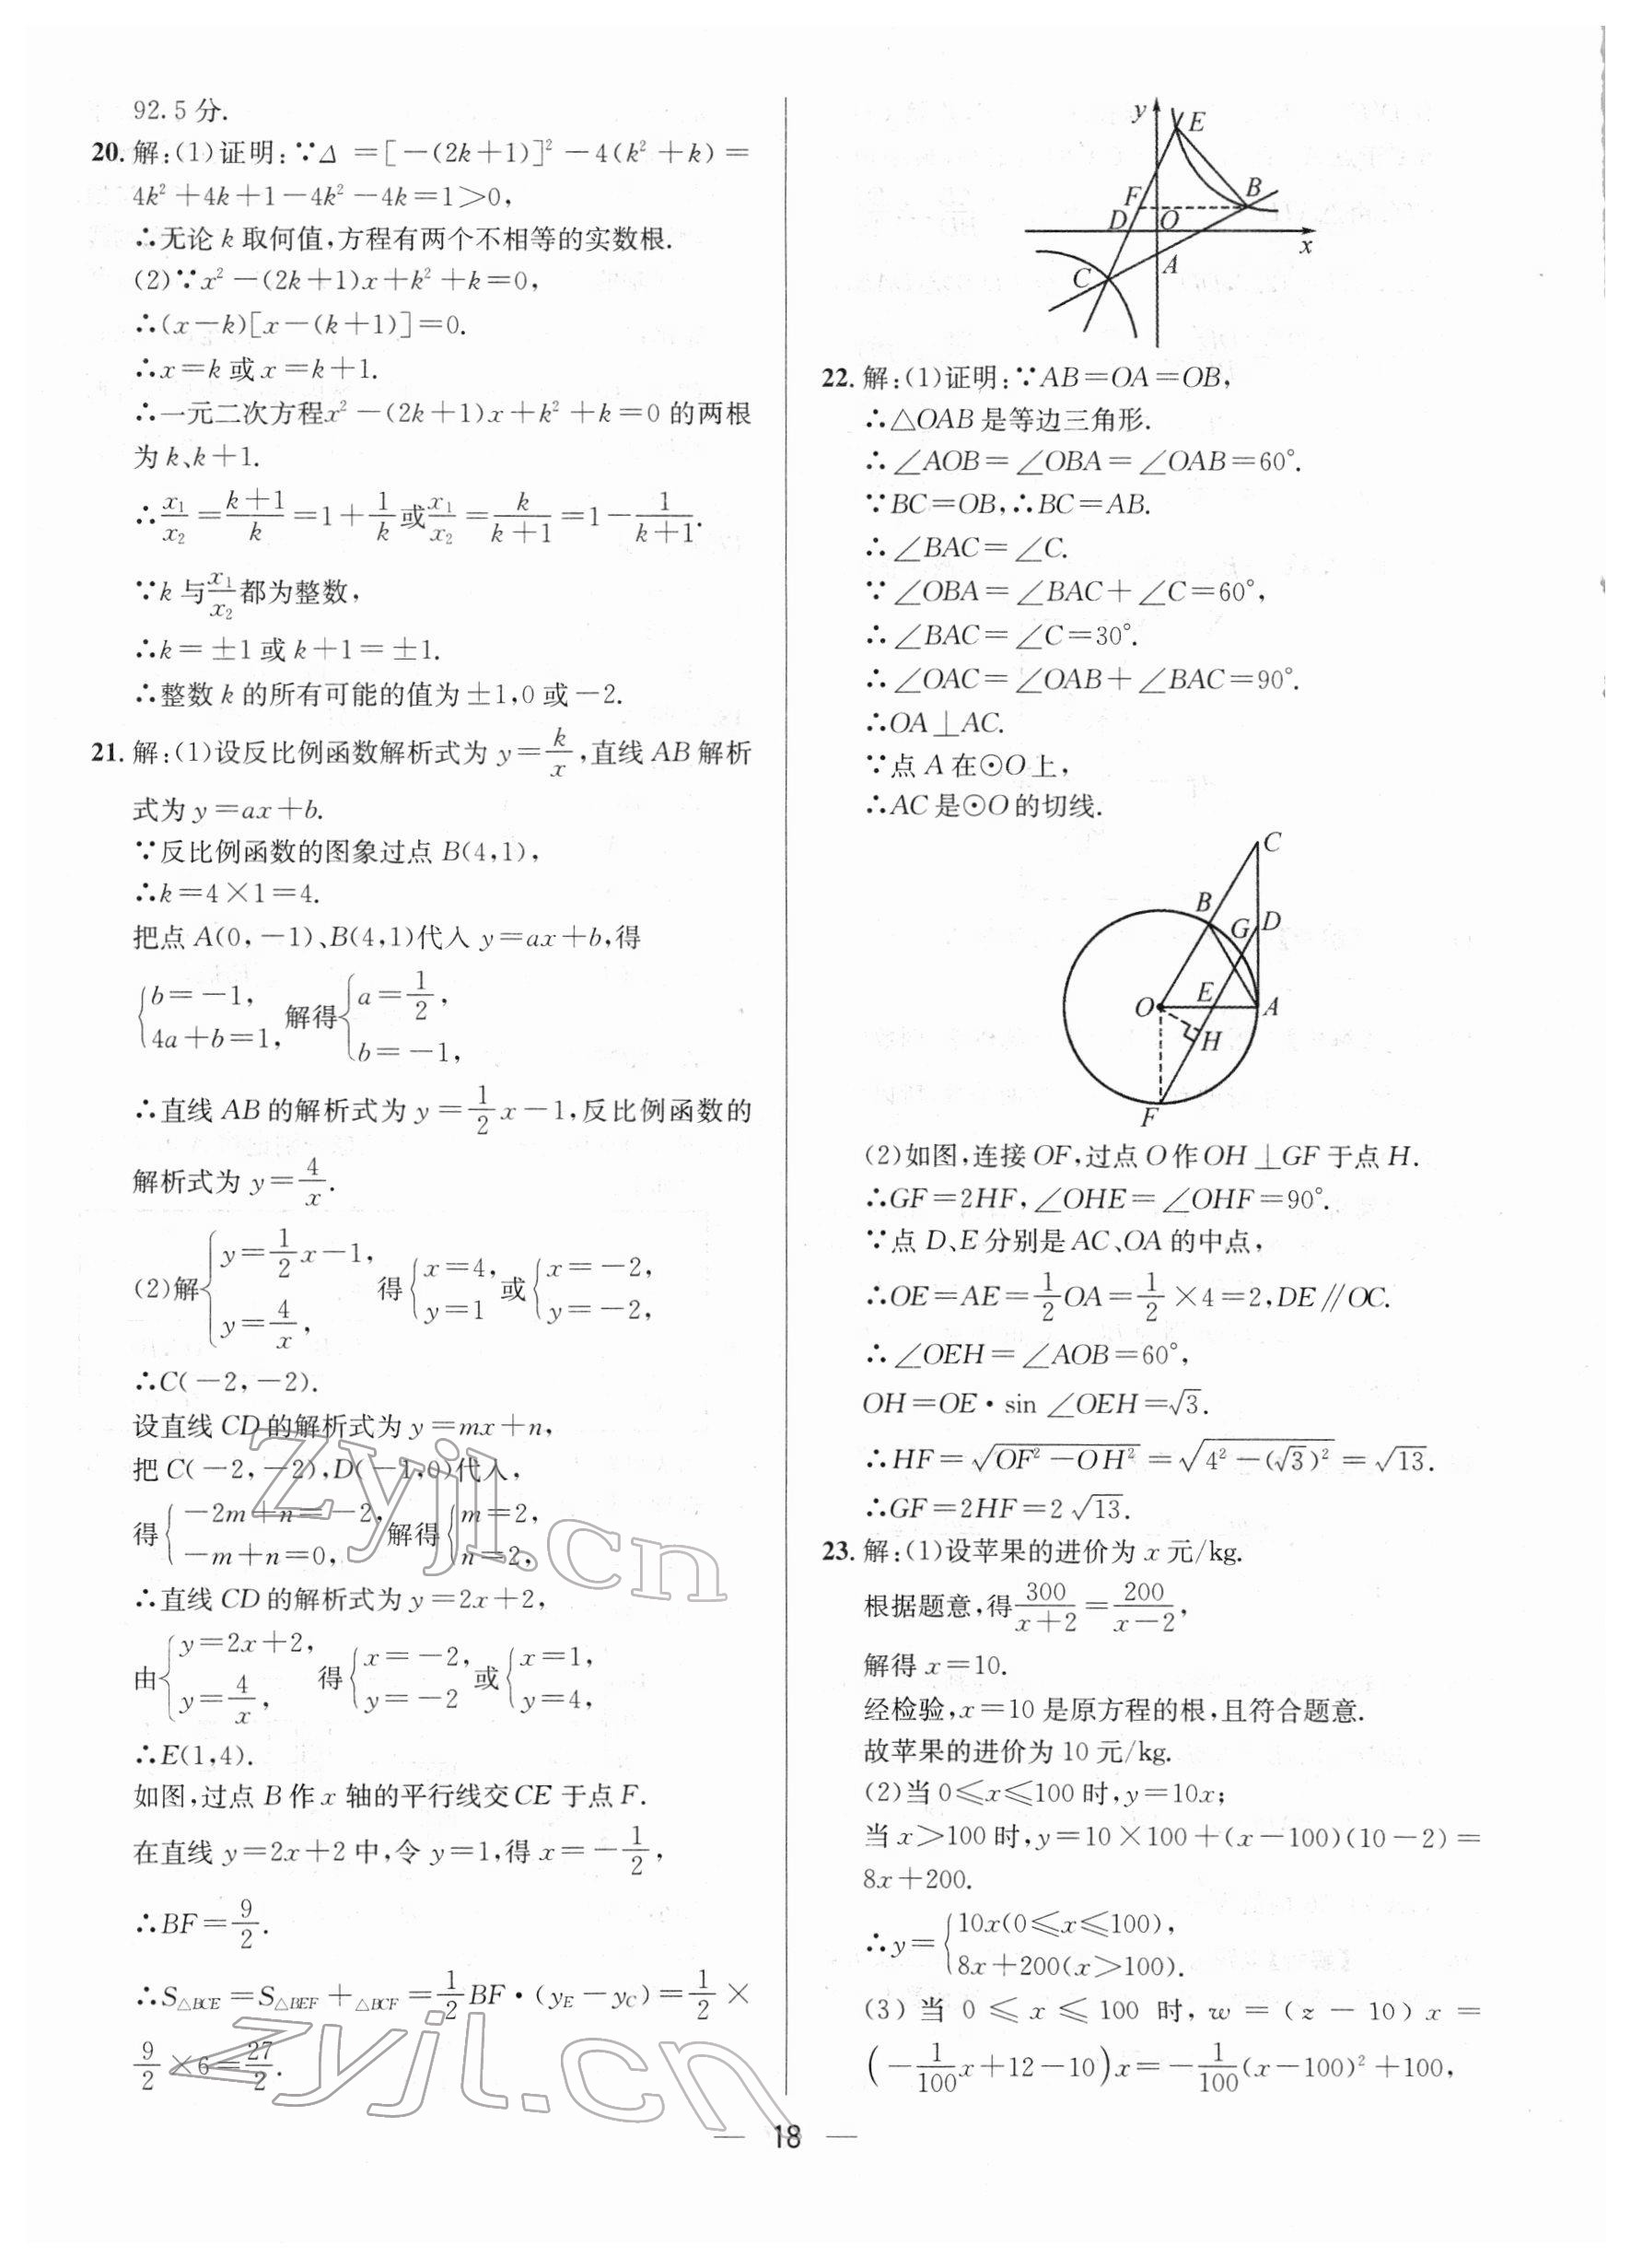 92.5分.
20. 解:(1)证明:∵Δ=[-(2k+1)]²-4(k²+k)=
4k²+4k+1-4k²-4k=1>0,
∴无论k取何值,方程有两个不相等的实数根.
(2)∵x²-(2k+1)x+k²+k=0,
∴(x-k)[x-(k+1)]=0.
∴x=k或x=k+1.
∴一元二次方程x²-(2k+1)x+k²+k=0的两根
为k、k+1.
∴x₁/x₂=(k+1)/k=1+1/k或x₁/x₂=k/(k+1)=1-1/(k+1).
∵k与x₁/x₂都为整数,
∴k=±1或k+1=±1.
∴整数k的所有可能的值为±1,0或-2.
21. 解:(1)设反比例函数解析式为y=k/x,直线AB解析
式为y=ax+b.
∵反比例函数的图象过点B(4,1),
∴k=4×1=4.
把点A(0,-1)、B(4,1)代入y=ax+b,得
{b=-1, 4a+b=1, 解得{a=1/2, b=-1,
∴直线AB的解析式为y=1/2x-1,反比例函数的
解析式为y=4/x.
(2)解{y=1/2x-1, y=4/x, 得{x=4, y=1 或{x=-2, y=-2,
∴C(-2,-2).
设直线CD的解析式为y=mx+n,
把C(-2,-2),D(-1,0)代入,
得{-2m+n=-2, -m+n=0, 解得{m=2, n=2,
∴直线CD的解析式为y=2x+2,
由{y=2x+2, y=4/x, 得{x=-2, y=-2 或{x=1, y=4,
∴E(1,4).
如图,过点B作x轴的平行线交CE于点F.
在直线y=2x+2中,令y=1,得x=-1/2,
∴BF=9/2.
∴S△BCE=S△BEF+△BCF=1/2BF·(yE-yC)=1/2×
9/2×6=27/2.
y
E
F
B
D
O
x
C
A
22. 解:(1)证明:∵AB=OA=OB,
∴△OAB是等边三角形.
∴∠AOB=∠OBA=∠OAB=60°.
∵BC=OB,∴BC=AB.
∴∠BAC=∠C.
∵∠OBA=∠BAC+∠C=60°,
∴∠BAC=∠C=30°.
∴∠OAC=∠OAB+∠BAC=90°.
∴OA⊥AC.
∵点A在⊙O上,
∴AC是⊙O的切线.
C
B
G D
E
O
A
H
F
(2)如图,连接OF,过点O作OH⊥GF于点H.
∴GF=2HF,∠OHE=∠OHF=90°.
∵点D、E分别是AC、OA的中点,
∴OE=AE=1/2OA=1/2×4=2,DE∥OC.
∴∠OEH=∠AOB=60°,
OH=OE·sin∠OEH=√3.
∴HF=√(OF²-OH²)=√(4²-(√3)²)=√13.
∴GF=2HF=2√13.
23. 解:(1)设苹果的进价为x元/kg.
根据题意,得300/(x+2)=200/(x-2),
解得x=10.
经检验,x=10是原方程的根,且符合题意.
故苹果的进价为10元/kg.
(2)当0≤x≤100时,y=10x;
当x>100时,y=10×100+(x-100)(10-2)=
8x+200.
∴y={10x(0≤x≤100), 8x+200(x>100).
(3)当0≤x≤100时,w=(z-10)x=
(-1/100x+12-10)x=-1/100(x-100)²+100,
— 18 —
zyjl.cn
zyjl.cn